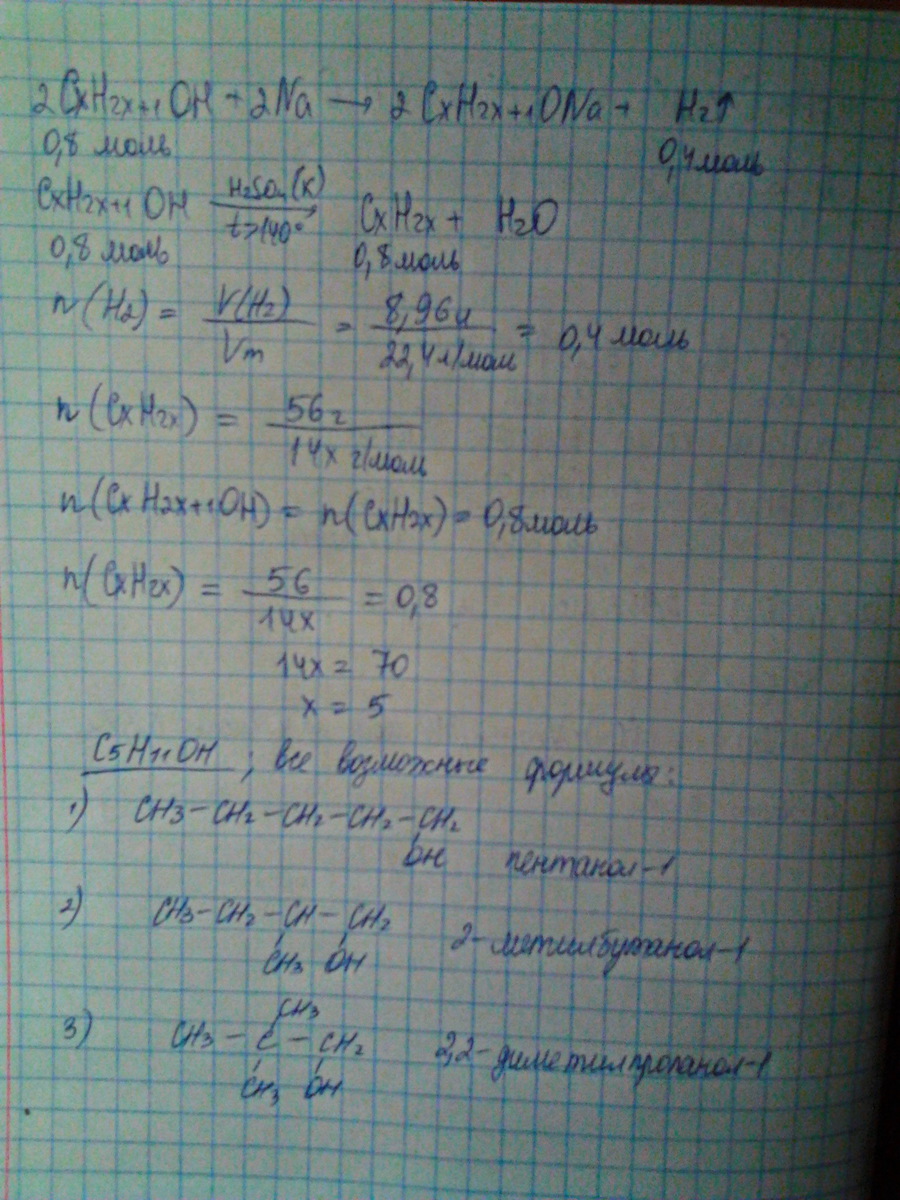 2CxH2x+1OH + 2Na → 2CxH2x+1ONa + H2↑
0,8 моль 0,4 моль
CxH2x+1OH H2SO4(к) t>140° → CxH2x + H2O
0,8 моль 0,8 моль
n(H2) = V(H2)/Vm = 8,96л/22,4л/моль = 0,4 моль
n(CxH2x) = 56г/14x г/моль
n(CxH2x+1OH) = n(CxH2x) = 0,8моль
n(CxH2x) = 56/14x = 0,8
14x = 70
x = 5
C5H11OH ; все возможные формулы:
1) CH3-CH2-CH2-CH2-CH2
OH пентанол-1
2) CH3-CH2-CH-CH2 2-метилбутанол-1
CH3 OH
CH3
3) CH3-C-CH2 2,2-диметилпропанол-1
CH3 OH